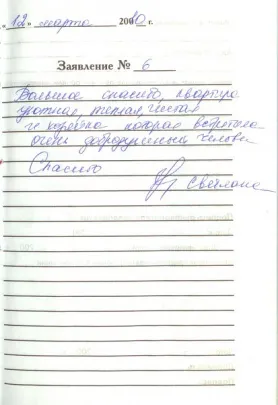 "12" марта 2010 г.
Заявление № 6
Большое спасибо, квартира
уютная, теплая, чистая
и хозяйка которая встретила
очень добродушный человек
Спасибо
Светлана